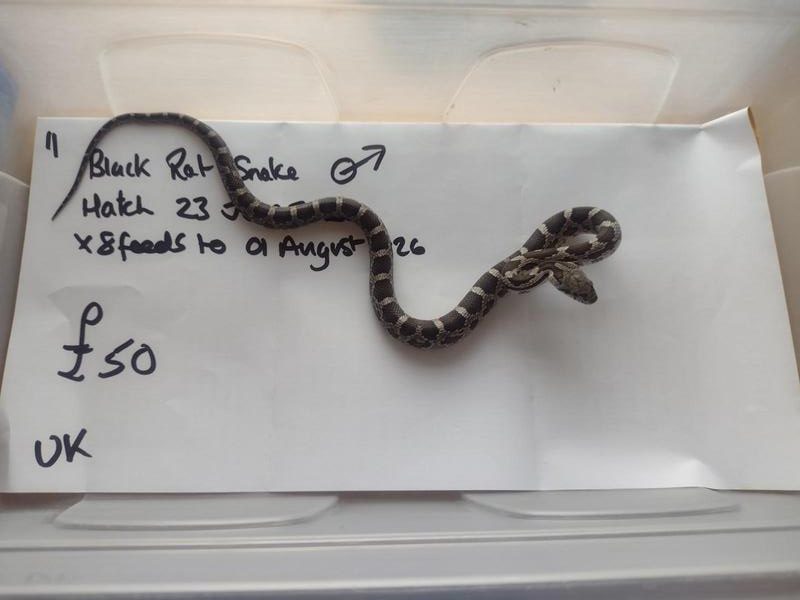 "
Black Rat Snake ♂
Hatch 23
x8 feeds to 01 August 26
£50
UK